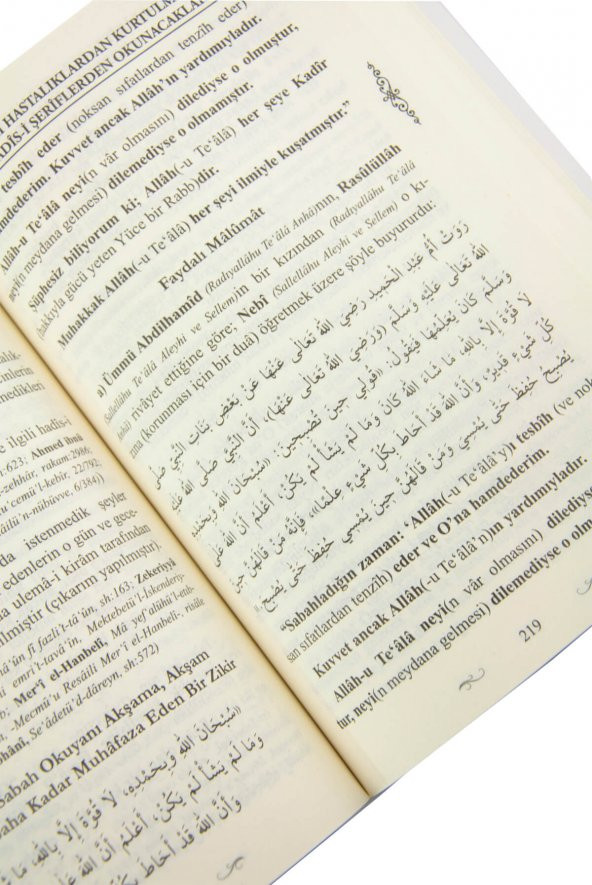 alık-
cinlerin
medikleri
e ilgili hadîs-i
:623; Ahmed ibnü
z-zehhâr, rakam:2986;
u'cemü'l-kebîr, 22/792,
âilü'n-nübüvve, 6/384))
da istenmedik şeyler
edenlerin o gün ve gece-
a ulemâ-i kirâm tarafından
ilmiştir (çıkarım yapılmıştır).
fî fazli't-tâ'ûn, sh:163; Zekeriyyâ
emri't-tavâ'în, Mektebetü'l-İskenderiy-
b; Mer'î el-Hanbelî, Mâ yef'alühü'l-etıb-
- Mecmû'u Resâili Mer'î el-Hanbelî-, risâle
bhânî, Se'âdetü'd-dâreyn, sh:372)
Sabah Okuyanı Akşama, Akşam
aha Kadar Muhâfaza Eden Bir Zikir
«سُبْحَانَ اللهِ وَبِحَمْدِهِ، لَا قُوَّةَ إِلَّا بِاللهِ، مَا شَاءَ
وَمَا لَمْ يَشَأْ لَمْ يَكُنْ، أَعْلَمُ أَنَّ اللهَ
وَأَنَّ اللهَ قَدْ أَحَاطَ بِكُلِّ
HASTALIKLARDAN KURTULM
DÎS-İ ŞERÎFLERDEN OKUNACAKLA
tesbîh eder (noksan sıfatlardan tenzîh eder)
mdederim. Kuvvet ancak Allâh'ın yardımıyladır.
Allâh-u Te'âlâ neyi(n vâr olmasını) dilediyse o olmuştur,
neyi(n meydana gelmesi) dilemediyse o olmamıştır.
Şüphesiz biliyorum ki; Allâh(-u Te'âlâ) her şeye Kadîr
(hakkıyla gücü yeten Yüce bir Rabb)dir.
Muhakkak Allâh(-u Te'âlâ) her şeyi ilmiyle kuşatmıştır."
Faydalı Mâlûmât
a) Ümmü Abdilhamîd (Radıyallâhu Te'âlâ Anhâ)nın, Rasûlüllâh
(Sallellâhu Te'âlâ Aleyhi ve Sellem)in bir kızından (Radıyallâhu Te'âlâ
Anhâ) rivâyet ettiğine göre; Nebî (Sallellâhu Aleyhi ve Sellem) o kı-
zına (korunması için bir duâ) öğretmek üzere şöyle buyururdu:
رَوَتْ أُمُّ عَبْدِ الْحَمِيدِ رَضِيَ اللهُ تَعَالَى عَنْهَا عَنْ بَعْضِ بَنَاتِ النَّبِيِّ صَلَّى
اللهُ تَعَالَى عَلَيْهِ وَسَلَّمَ (وَرَضِيَ اللهُ تَعَالَى عَنْهَا)، أَنَّ النَّبِيَّ صَلَّى اللهُ عَلَيْهِ
وَسَلَّمَ كَانَ يُعَلِّمُهَا فَيَقُولُ: «قُولِي حِينَ تُصْبِحِينَ: «سُبْحَانَ اللهِ وَبِحَمْدِهِ،
لَا قُوَّةَ إِلَّا بِاللهِ، مَا شَاءَ اللهُ كَانَ وَمَا لَمْ يَشَأْ لَمْ يَكُنْ، أَعْلَمُ أَنَّ اللهَ عَلَى
كُلِّ شَيْءٍ قَدِيرٌ، وَأَنَّ اللهَ قَدْ أَحَاطَ بِكُلِّ شَيْءٍ عِلْمًا»، فَإِنَّهُ مَنْ قَالَهُنَّ حِينَ
يُصْبِحُ حُفِظَ حَتَّى يُمْسِيَ وَمَنْ قَالَهُنَّ حِينَ يُمْسِي حُفِظَ حَتَّى يُصْبِحَ.»
"Sabahladığın zaman: 'Allâh(-u Te'âlâ'y)ı tesbîh (ve nok-
san sıfatlardan tenzîh) eder ve O'na hamdederim.
Kuvvet ancak Allâh(-u Te'âlâ'n)ın yardımıyladır.
Allâh-u Te'âlâ neyi(n vâr olmasını) dilediyse o olmuş-
tur, neyi(n meydana gelmesi) dilemediyse o olma
219